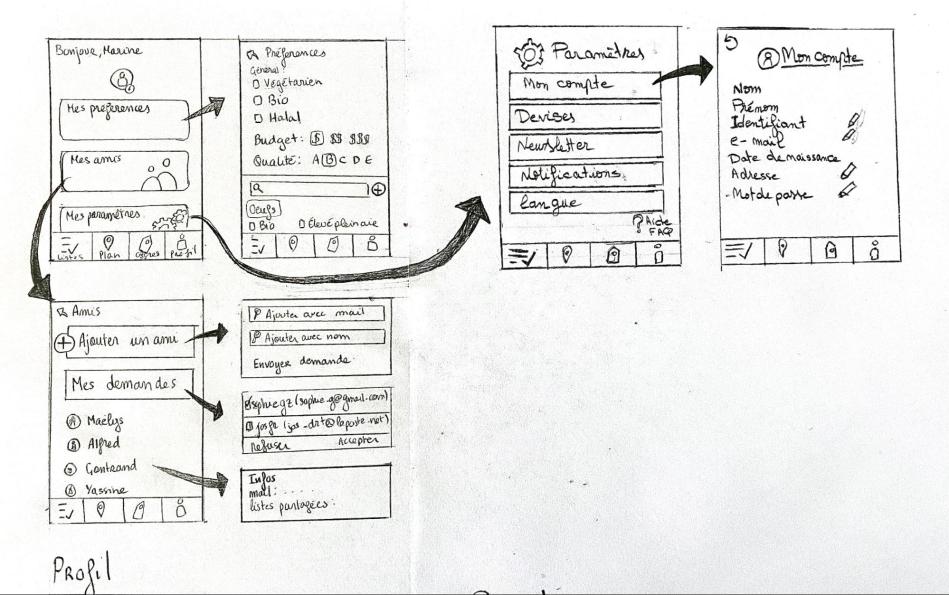 Bonjour, Marine
Mes préferences
Mes amis
Mes paramètres
Listes Plan offres Profil
Préférences
Général:
Végétarien
Bio
Halal
Budget: $ $$ $$$
Qualité: A B C D E
Oeufs
Bio Élevé plein aire
Paramètres
Mon compte
Devises
Newsletter
Notifications
Langue
? Aide
FAQ
Mon compte
Nom
Prénom
Identifiant
e-mail
Date de naissance
Adresse
Mot de passe
Amis
+ Ajouter un ami
Mes demandes
Maëlys
Alfred
Gontrand
Yassine
Ajouter avec mail
Ajouter avec nom
Envoyer demande
sophiegz (sophie.g@gmail.com)
Refuser Accepter
Infos
mail: .....
listes partagées:
Profil